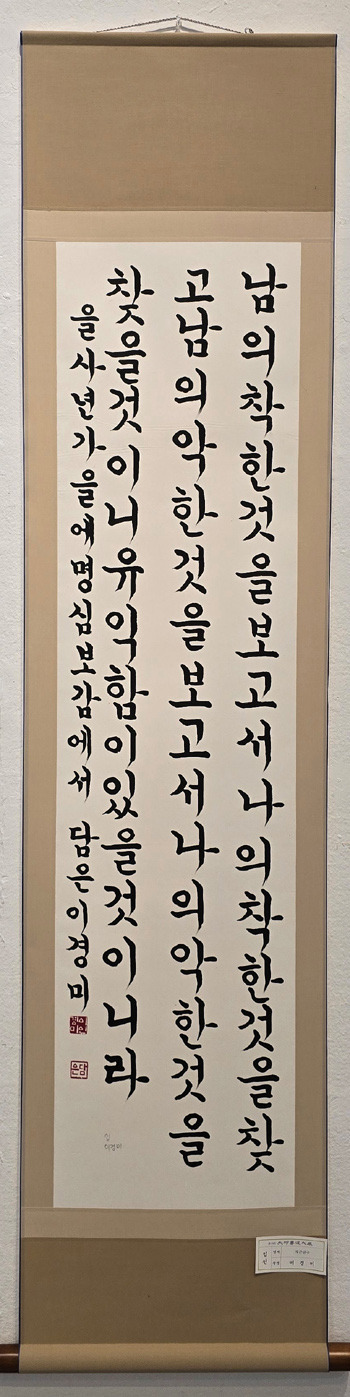 남의착한것을보고서나의착한것을찾
고남의악한것을보고서나의악한것을
찾을것이니유익함이있을것이니라
을사년가을에명심보감에서 담은이경미
담은
입선
이경미